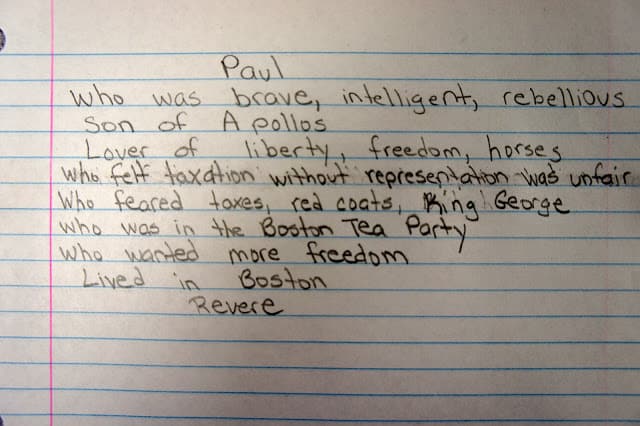 Paul
Who was brave, intelligent, rebellious
Son of Apollos
Lover of liberty, freedom, horses
who felt taxation without representation was unfair
Who feared taxes, red coats, King George
who was in the Boston Tea Party
who wanted more freedom
Lived in Boston
Revere